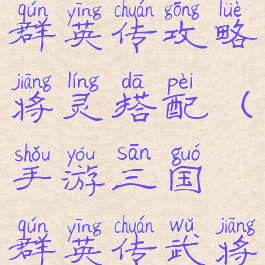 qún yīng chuán gōng lüè
群英传攻略
jiāng líng dā pèi
将灵搭配（
shǒu yóu sān guó
手游三国
qún yīng chuán wǔ jiāng
群英传武将